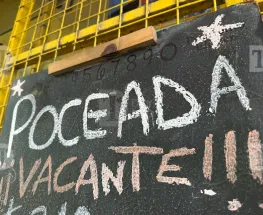 567890
POCEADA
¡¡VACANTE!!!